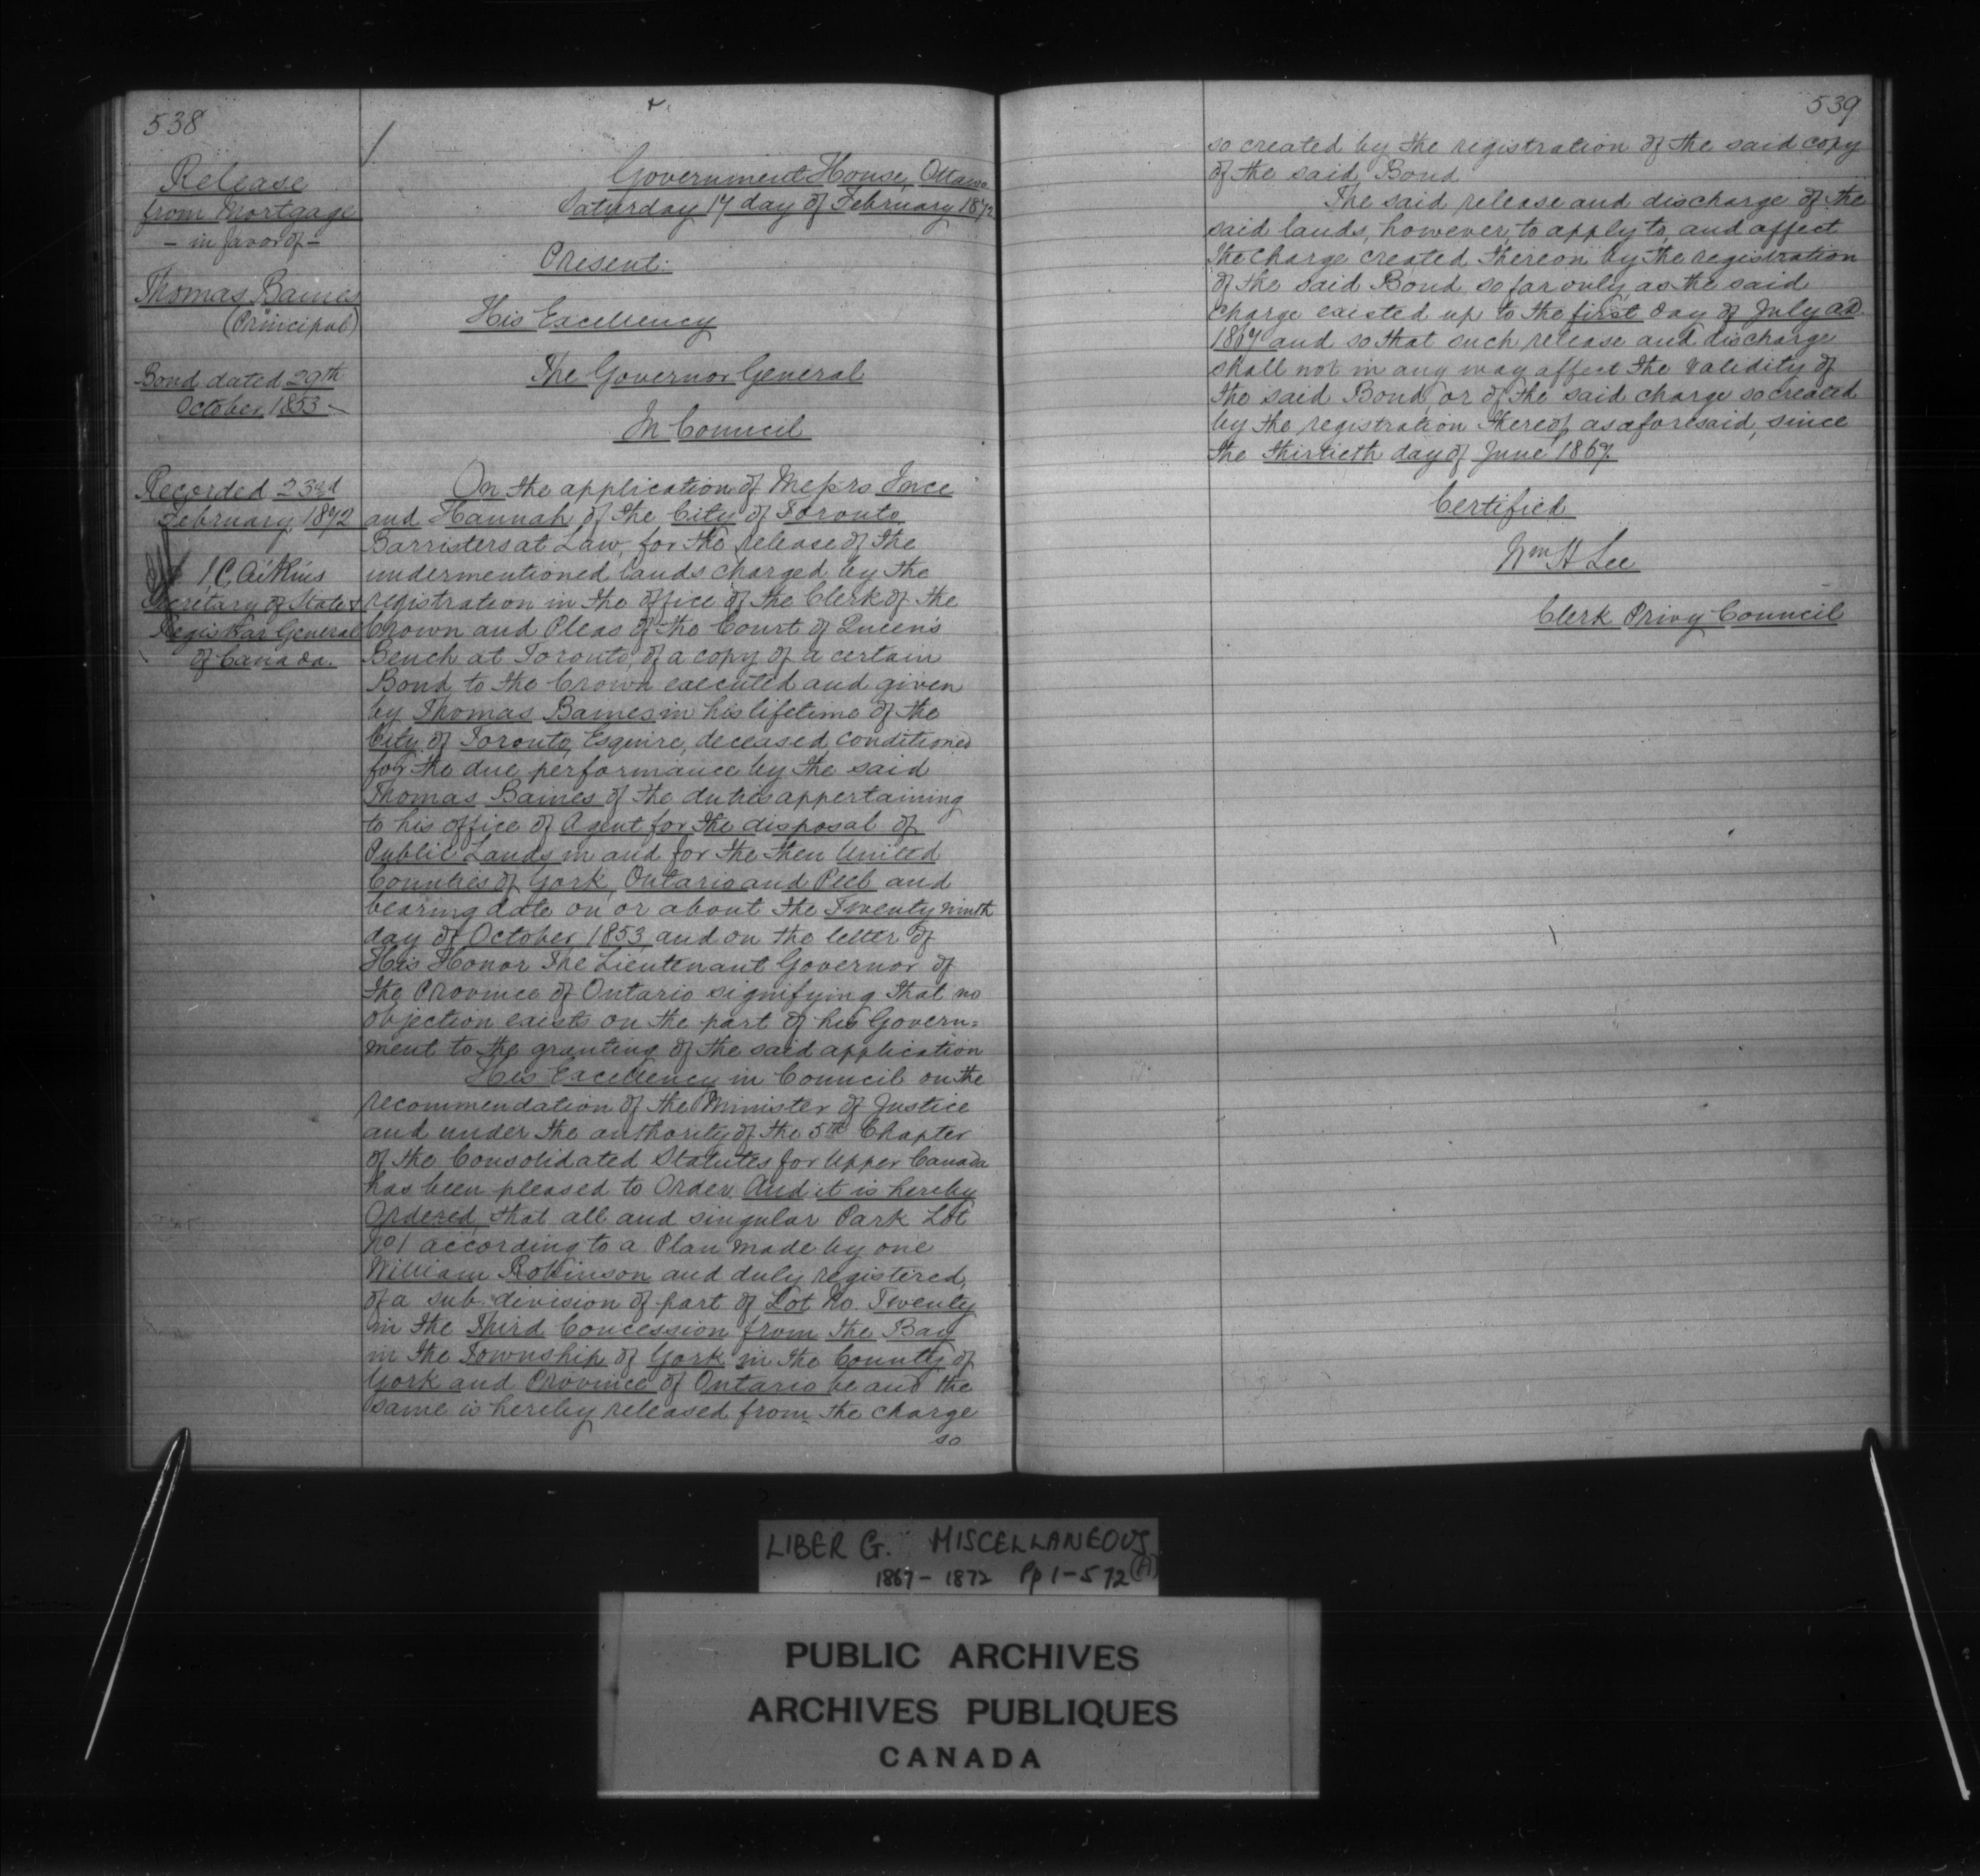 538
Release
from Mortgage
- in favor of -
Thomas Baines
(Principal)
Bond dated 29th
October, 1853
Recorded 23rd
February, 1872
J C Aikins
Secretary of State &
Registrar General
of Canada.
Government House, Ottawa
Saturday 17 day of February 1872
Present:
His Excellency
The Governor General
In Council
On the application of Messrs Ince
and Hannah of the City of Toronto
Barristers at Law, for the release of the
undermentioned lands charged by the
registration in the office of the Clerk of the
Crown and Pleas of the Court of Queen's
Bench at Toronto, of a copy of a certain
Bond to the Crown executed and given
by Thomas Baines in his lifetime of the
City of Toronto, Esquire, deceased, conditioned
for the due performance by the said
Thomas Baines of the duties appertaining
to his office of Agent for the disposal of
Public Lands in and for the then United
Counties of York, Ontario and Peel and
bearing date on or about the Twenty ninth
day of October, 1853 and on the letter of
His Honor The Lieutenant Governor of
the Province of Ontario signifying that no
objection exists on the part of his Govern=
ment to the granting of the said application
His Excellency in Council on the
recommendation of the Minister of Justice
and under the authority of the 5th Chapter
of the Consolidated Statutes for Upper Canada
has been pleased to Order, And it is hereby
Ordered, that all and singular Park Lot
No 1 according to a Plan made by one
William Robinson and duly registered,
of a sub-division of part of Lot No. Twenty
in the Third Concession from the Bay
in the Township of York in the County of
York and Province of Ontario be and the
same is hereby released from the charge
so
539
so created by the registration of the said copy
of the said Bond
The said release and discharge of the
said lands, however, to apply to, and affect
the charge created thereon by the registration
of the said Bond so far only as the said
charge existed up to the first day of July AD.
1867 and so that such release and discharge
shall not in any way affect the validity of
the said Bond, or of the said charge so created
by the registration thereof as aforesaid, since
the thirtieth day of June 1867.
Certified
Wm H Lee
Clerk Privy Council
LIBER G. MISCELLANEOUS
1867 - 1872 Pp 1-572 (A)
PUBLIC ARCHIVES
ARCHIVES PUBLIQUES
CANADA